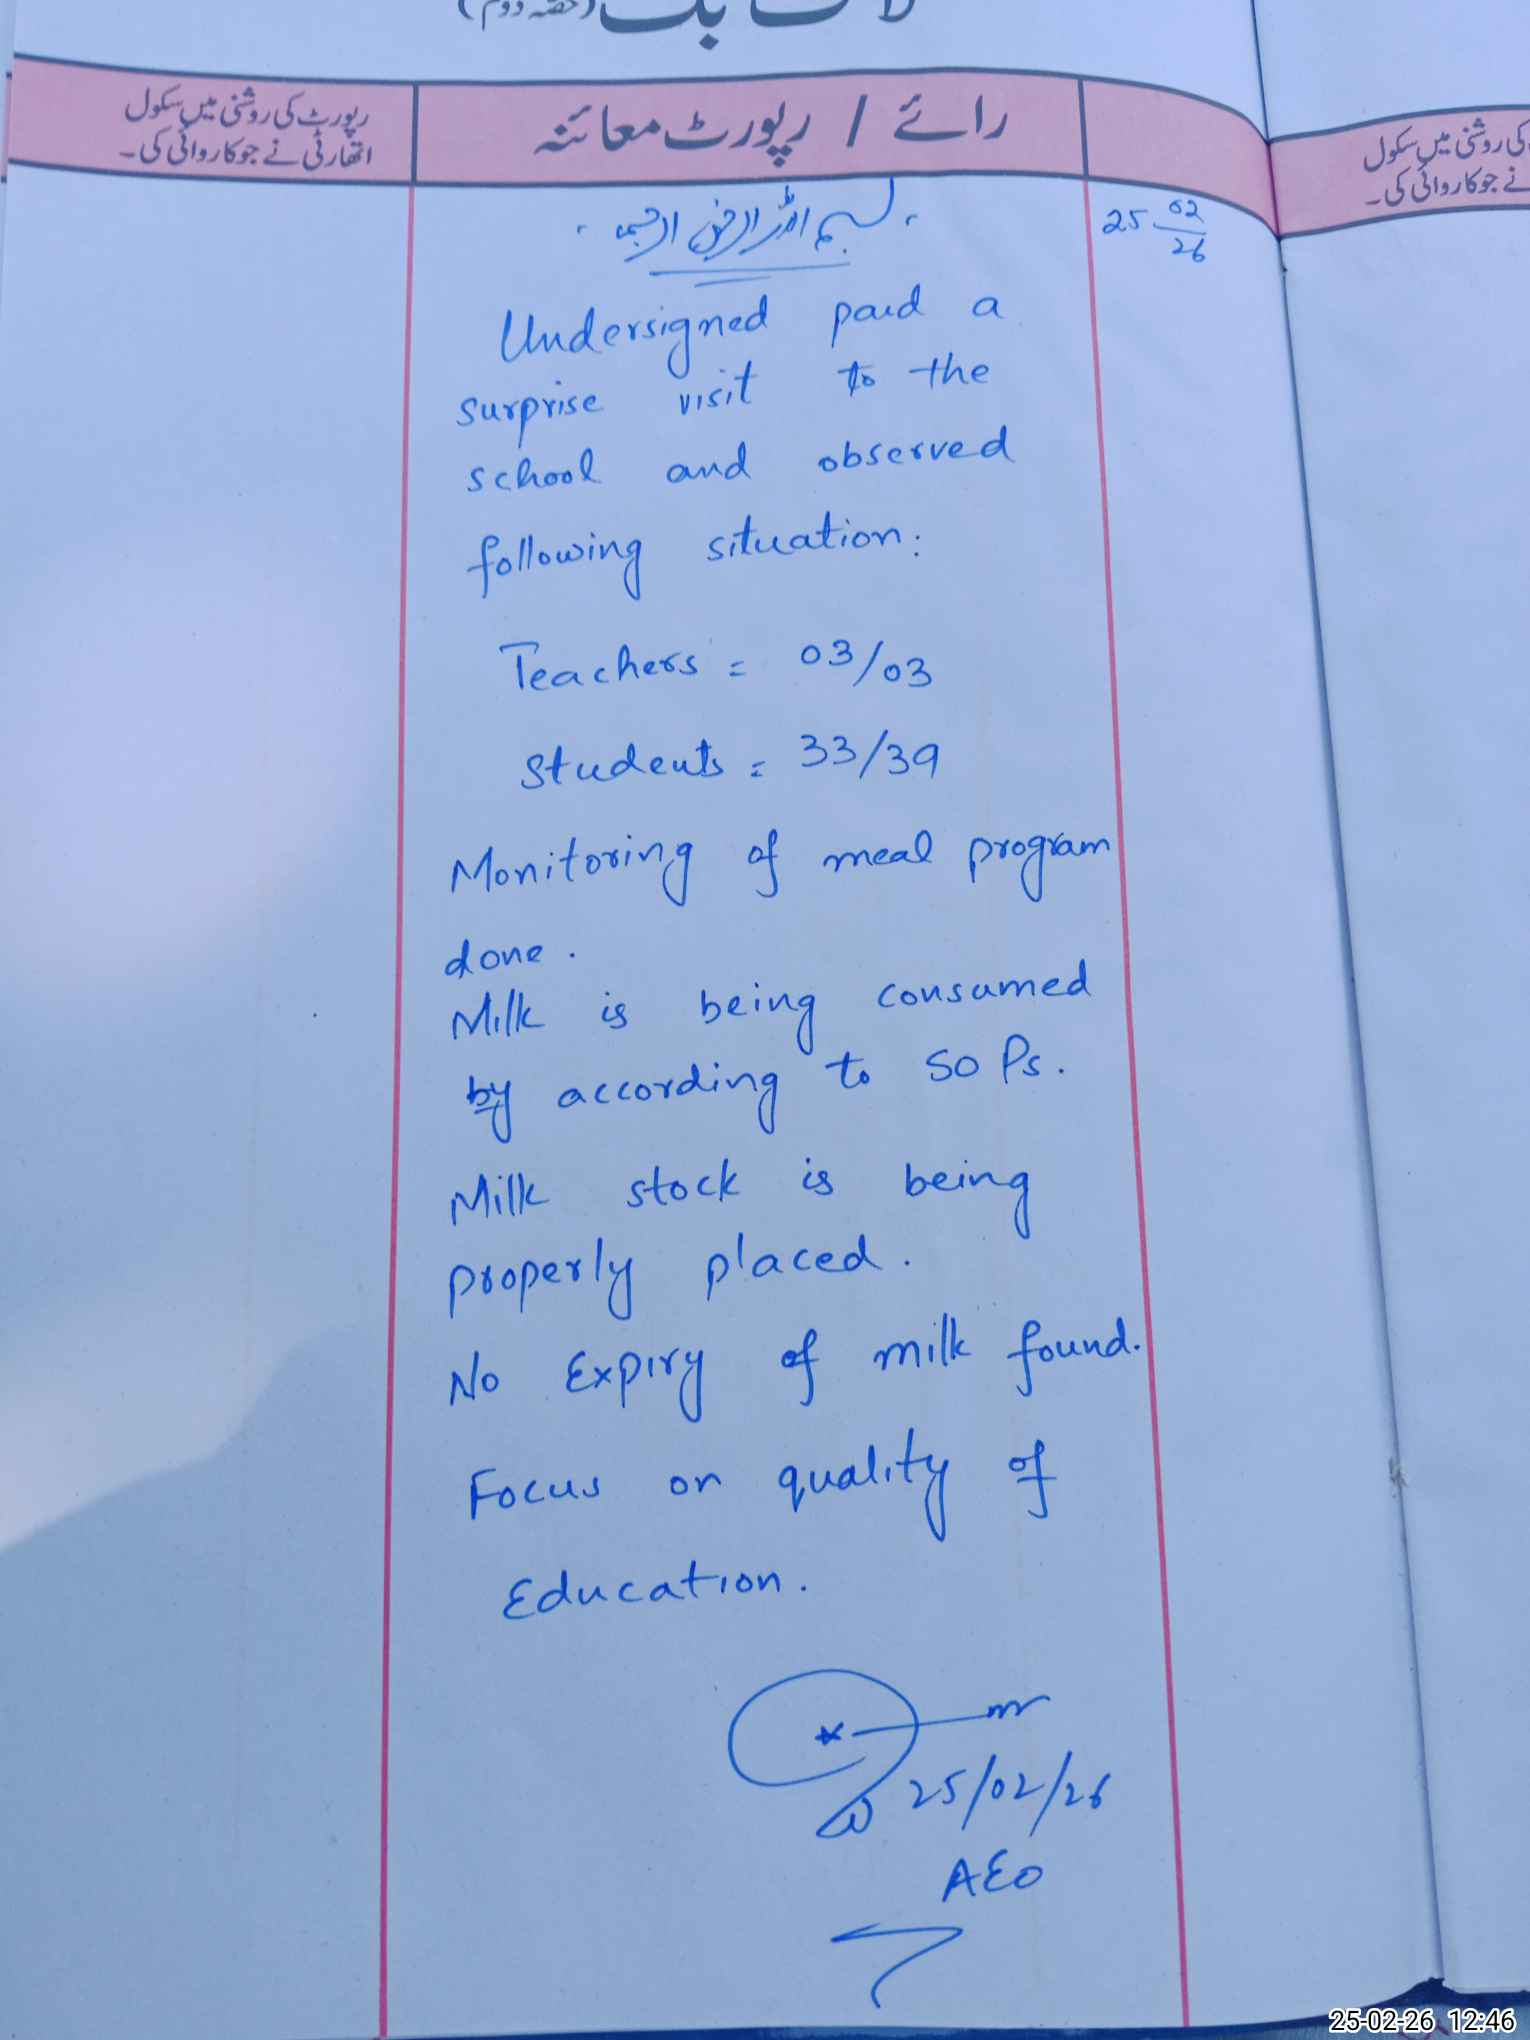 لاگ بک (حصہ دوم)
رائے / رپورٹ معائنہ
رپورٹ کی روشنی میں سکول
اتھارٹی نے جو کاروائی کی۔
کی روشنی میں سکول
نے جو کاروائی کی۔
25 02/26
بسم اللہ الرحمن الرحیم
Undersigned paid a
surprise visit to the
school and observed
following situation:
Teachers = 03/03
Students = 33/39
Monitoring of meal program
done.
Milk is being consumed
by according to SOPs.
Milk stock is being
properly placed.
No Expiry of milk found.
Focus on quality of
Education.
25/02/26
AEO
25-02-26 12:46